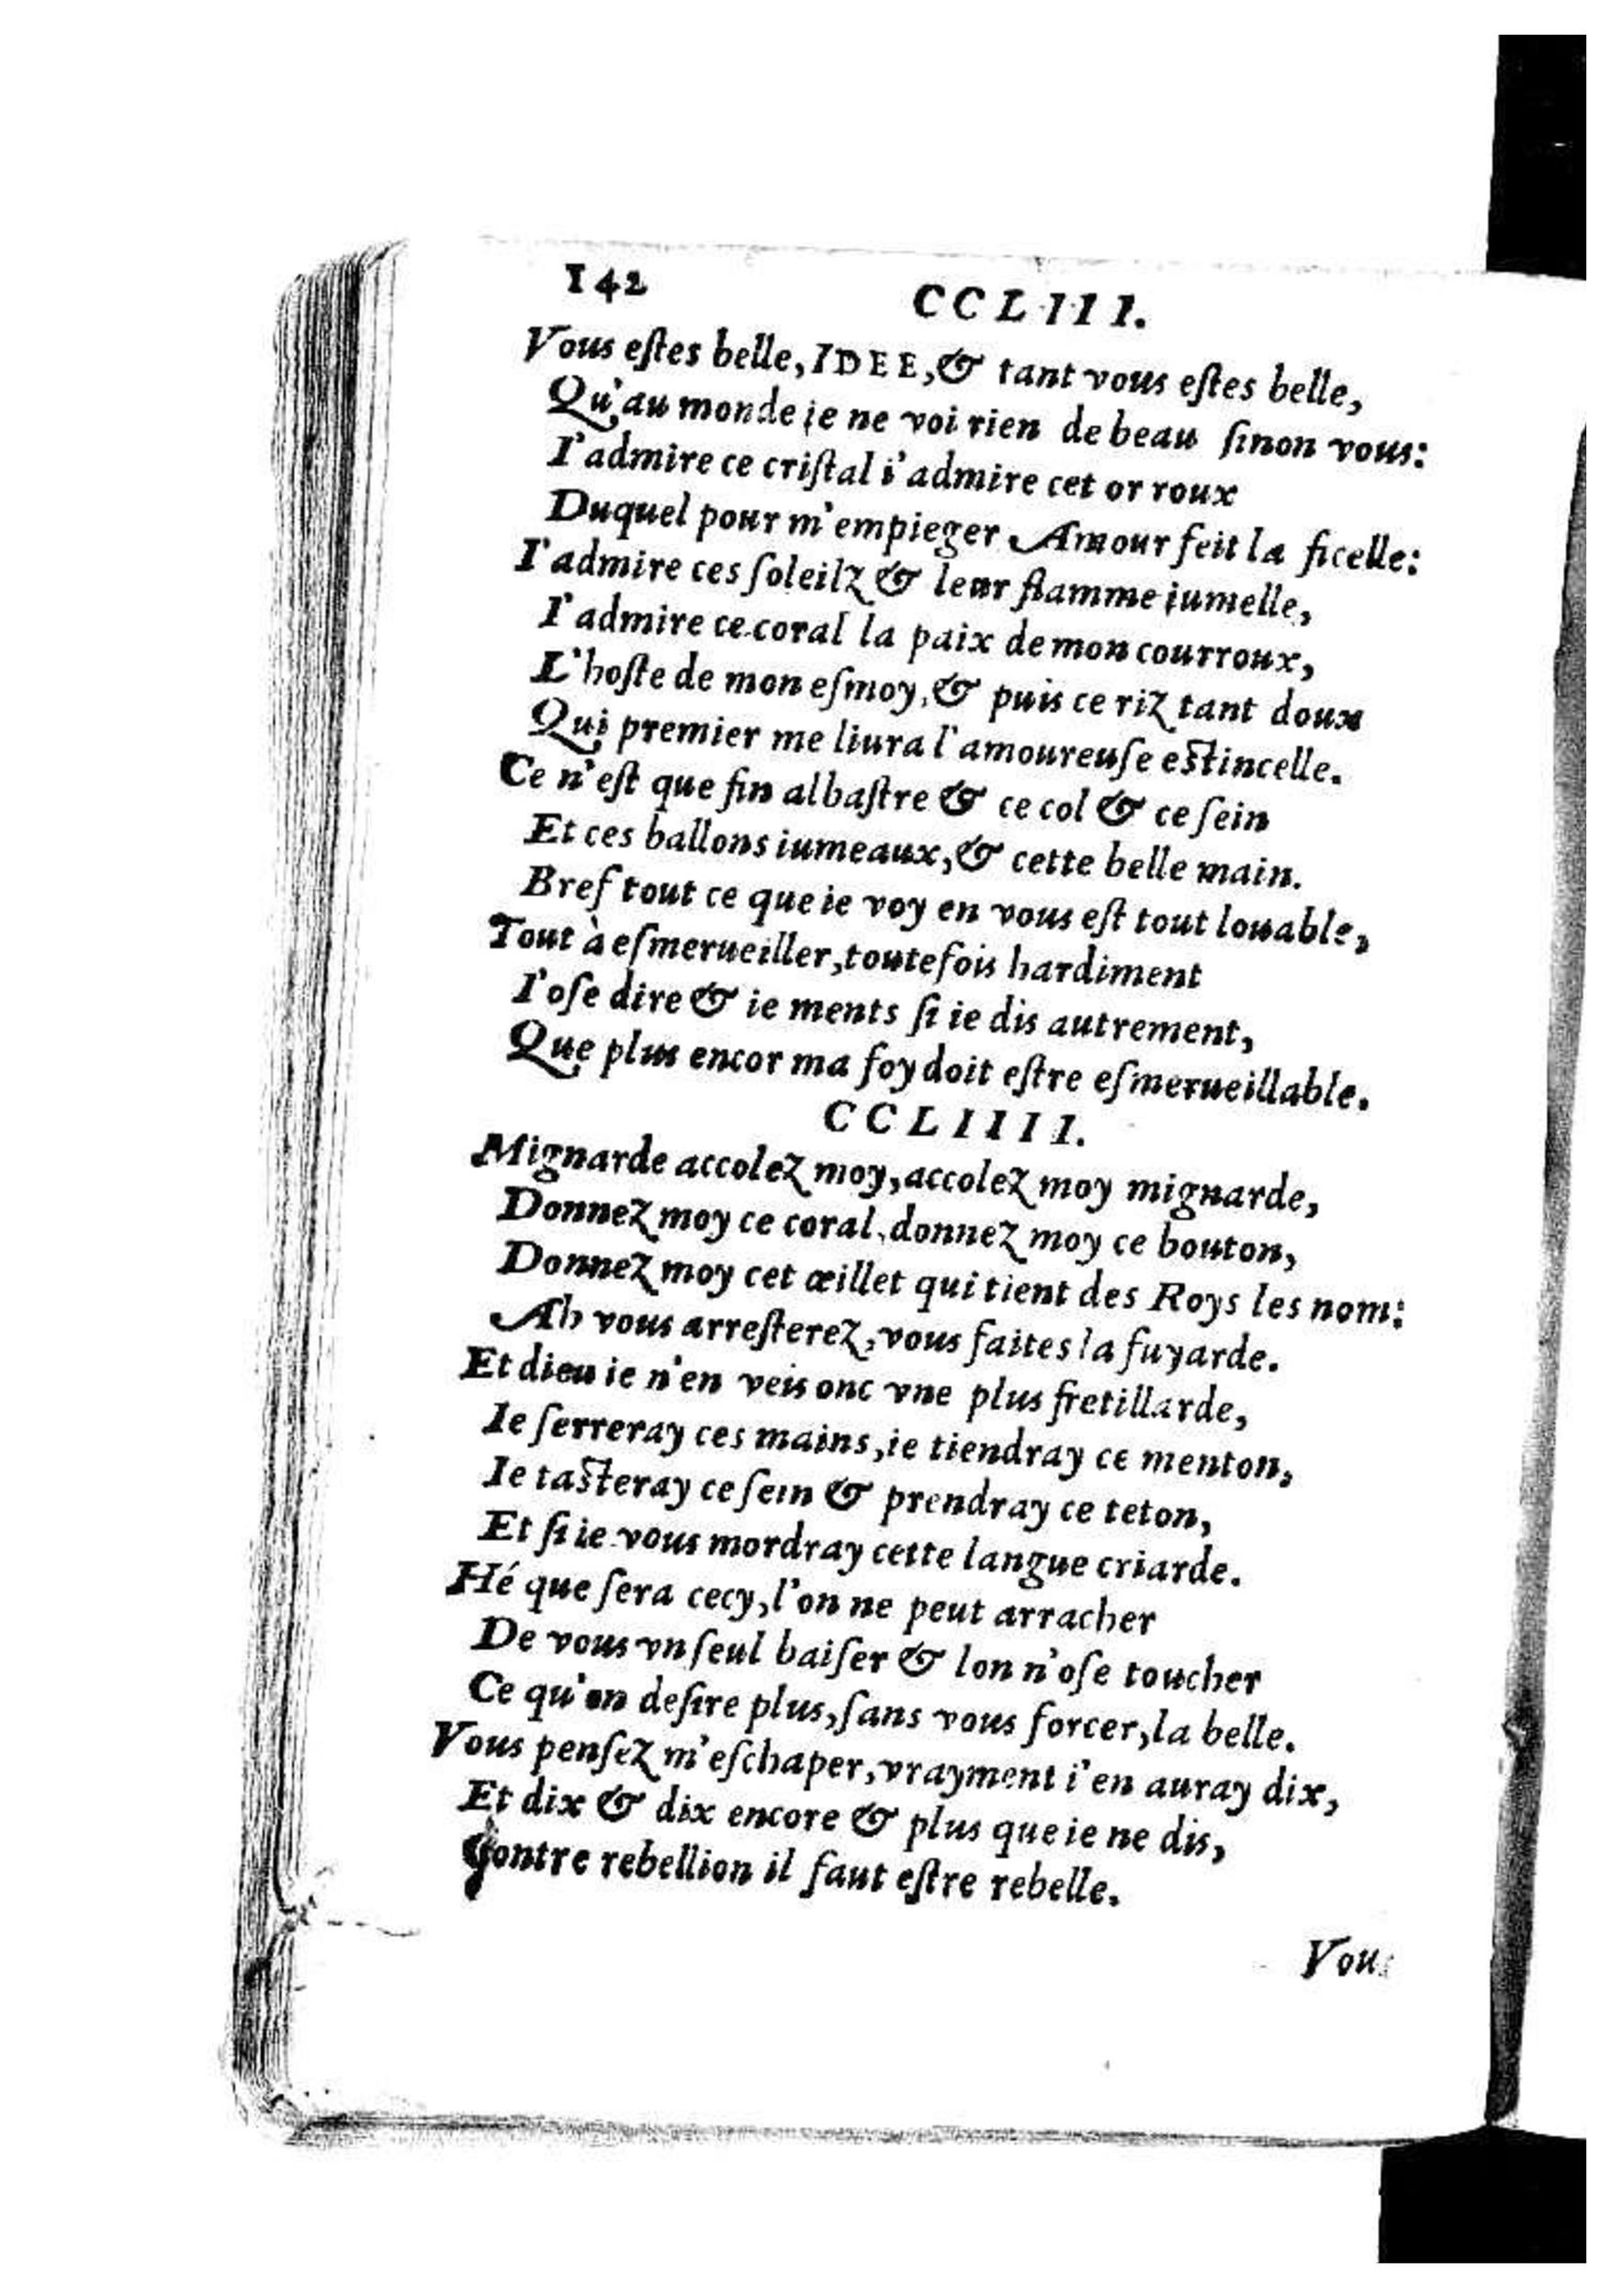 142
CCLIII.
Vous eſtes belle, IDEE, & tant vous eſtes belle,
Qu'au monde ie ne voi rien de beau ſinon vous:
I'admire ce criſtal i'admire cet or roux
Duquel pour m'empieger Amour feit la ficelle:
I'admire ces ſoleilz & leur flamme iumelle,
I'admire ce coral la paix de mon courroux,
L'hoſte de mon eſmoy, & puis ce riz tant doux
Qui premier me liura l'amoureuſe eſtincelle.
Ce n'eſt que fin albaſtre & ce col & ce ſein
Et ces ballons iumeaux, & cette belle main.
Bref tout ce que ie voy en vous eſt tout louable,
Tout à eſmerueiller, toutefois hardiment
I'oſe dire & ie ments ſi ie dis autrement,
Que plus encor ma foy doit eſtre eſmerueillable.
CCLIIII.
Mignarde accolez moy, accolez moy mignarde,
Donnez moy ce coral, donnez moy ce bouton,
Donnez moy cet œillet qui tient des Roys les nom:
Ah vous arreſterez, vous faites la fuyarde.
Et dieu ie n'en veis onc vne plus fretillarde,
Ie ſerreray ces mains, ie tiendray ce menton,
Ie taſteray ce ſein & prendray ce teton,
Et ſi ie vous mordray cette langue criarde.
Hé que ſera cecy, l'on ne peut arracher
De vous vn ſeul baiſer & lon n'oſe toucher
Ce qu'on deſire plus, ſans vous forcer, la belle.
Vous penſez m'eſchaper, vrayment i'en auray dix,
Et dix & dix encore & plus que ie ne dis,
Contre rebellion il faut eſtre rebelle.
Vous